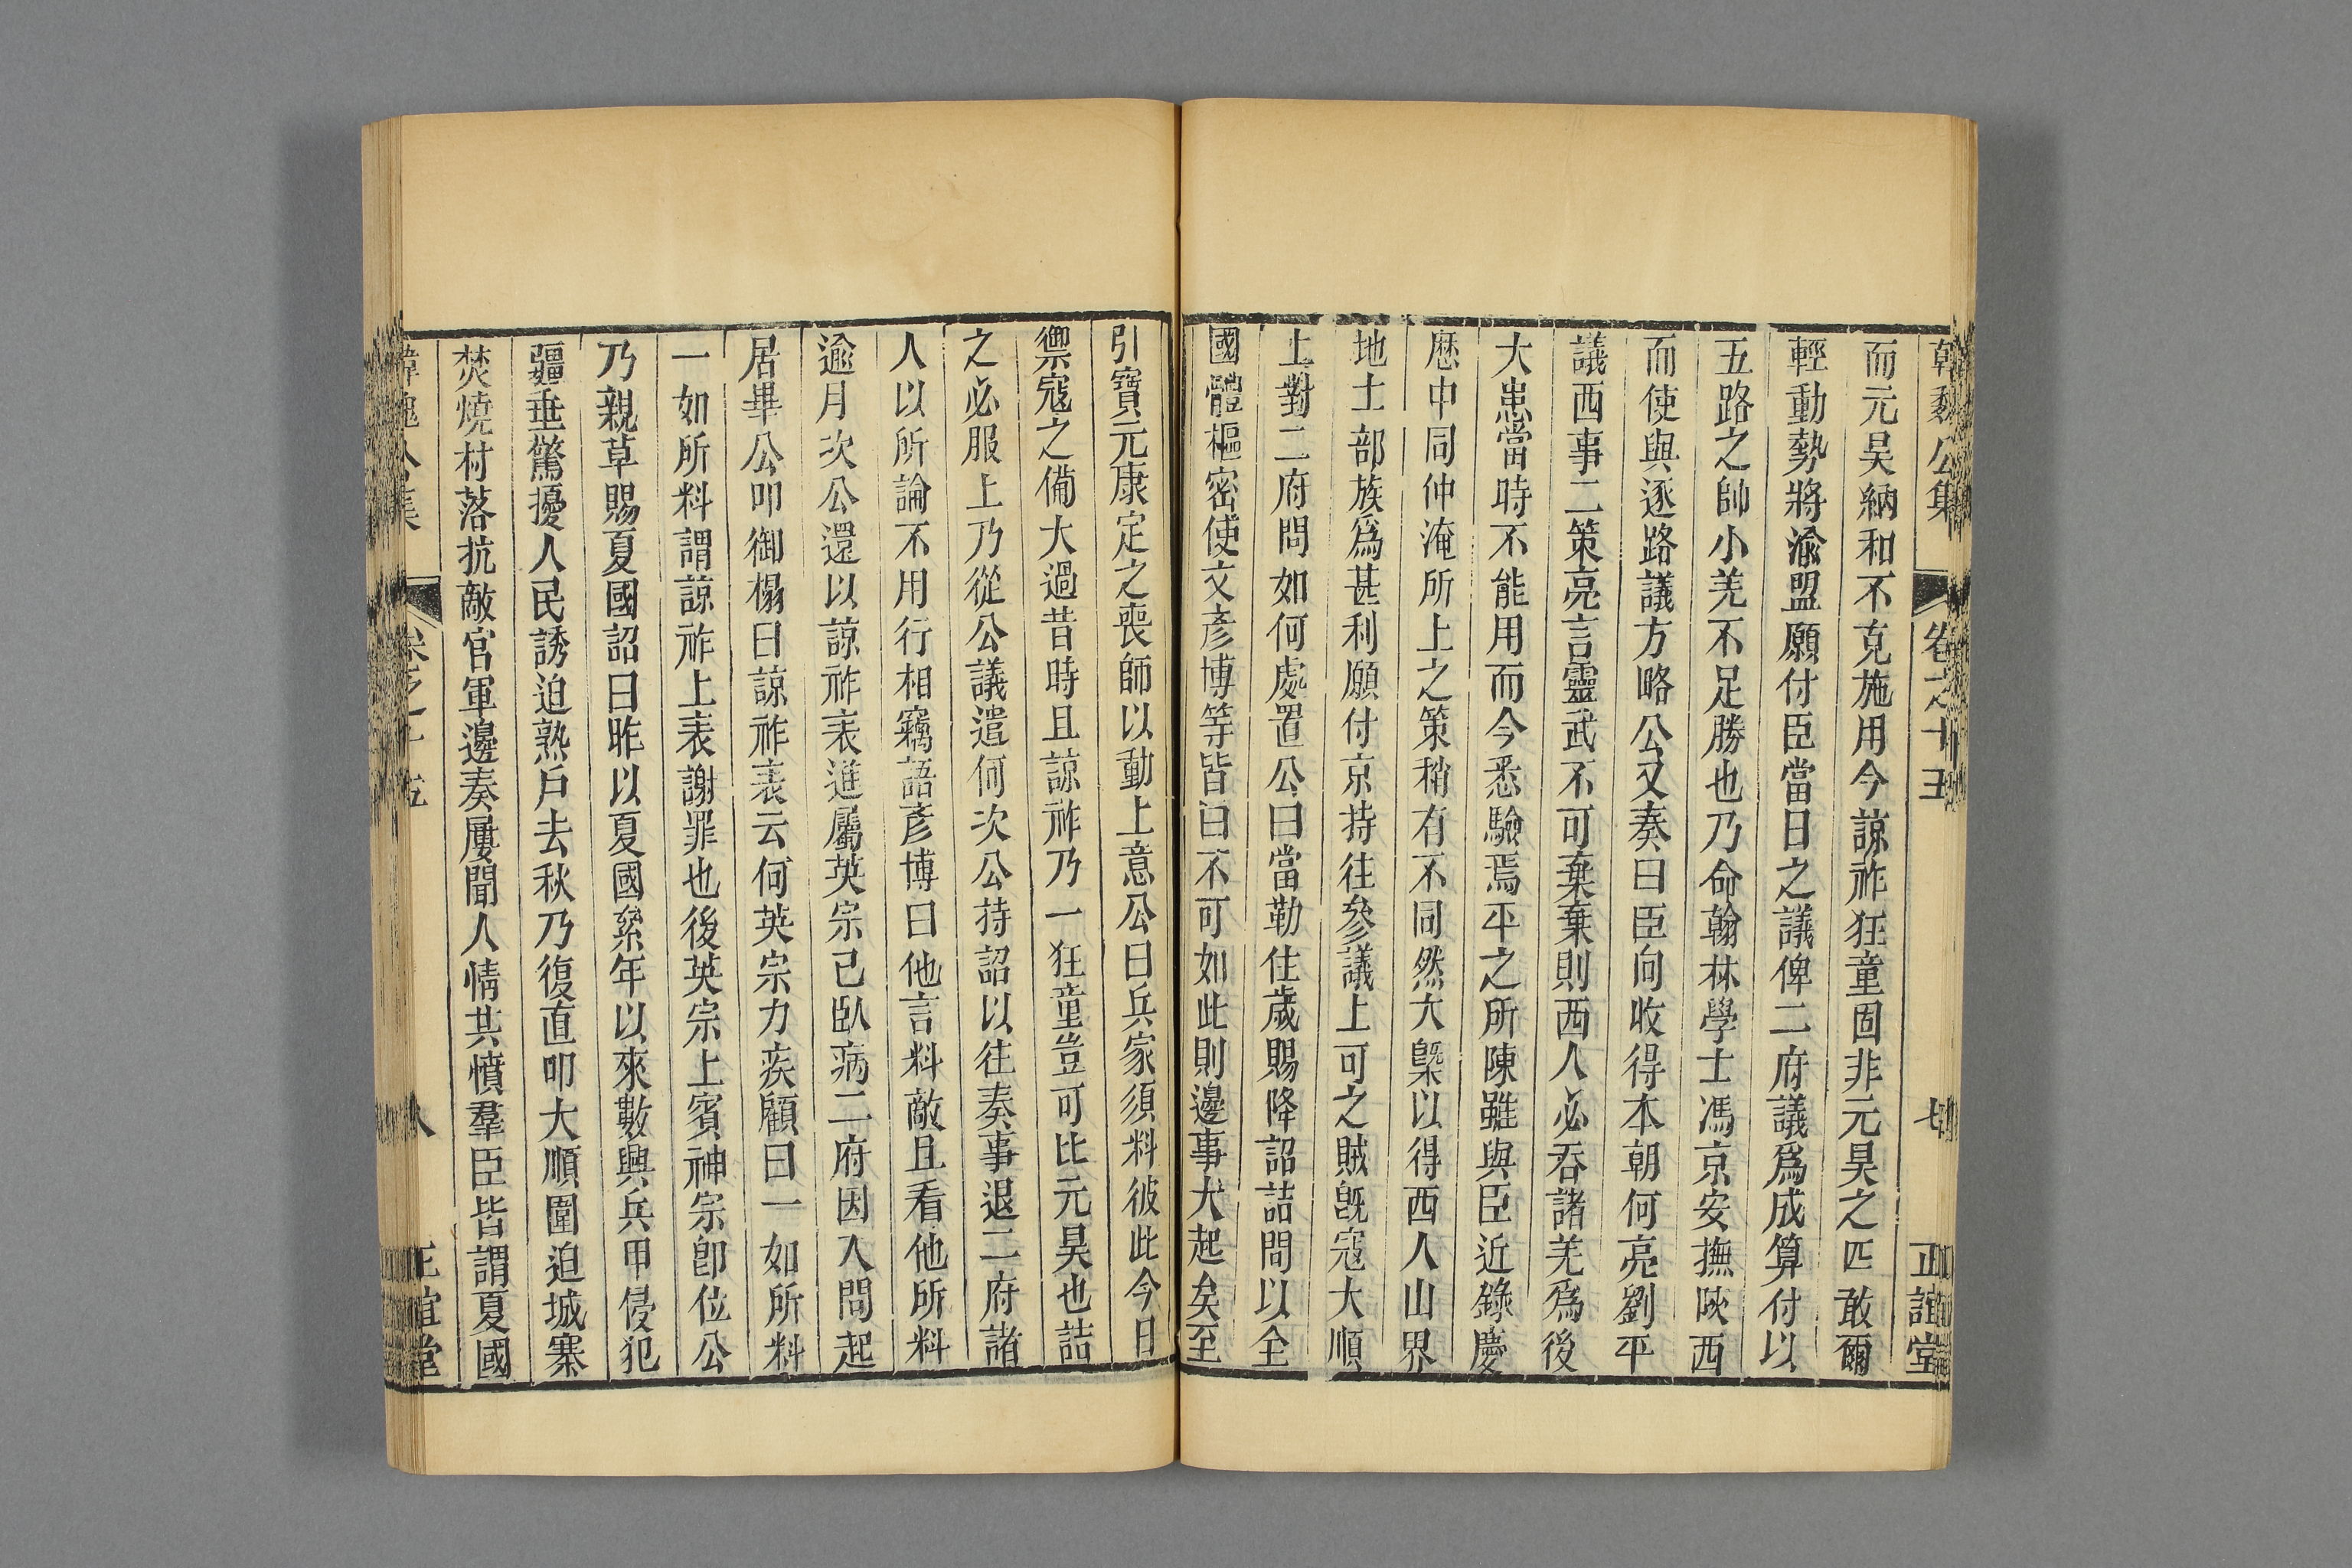 韓魏公集 卷之十五 七 正誼堂
而元昊納和不克施用今諒祚狂童固非元昊之匹敢爾
輕動勢將渝盟願付臣當日之議俾二府議爲成算付以
五路之帥小羌不足勝也乃命翰林學士馮京安撫陜西
而使與逐路議方略公又奏曰臣向收得本朝何亮劉平
議西事二策亮言靈武不可棄棄則西人必吞諸羌爲後
大患當時不能用而今悉驗焉平之所陳雖與臣近錄慶
歷中同仲淹所上之策稍有不同然大槩以得西人山界
地土部族爲甚利願付京持往參議上可之賊旣寇大順
上對二府問如何處置公曰當勒住歲賜降詔詰問以全
國體樞密使文彥博等皆曰不可如此則邊事大起矣至
引寶元康定之喪師以動上意公曰兵家須料彼此今日
禦寇之備大過昔時且諒祚乃一狂童豈可比元昊也詰
之必服上乃從公議遣何次公持詔以往奏事退二府諸
人以所論不用行相竊語彥博曰他言料敵且看他所料
逾月次公還以諒祚表進屬英宗已臥病二府因入問起
居畢公叩御榻曰諒祚表云何英宗力疾顧曰一如所料
一如所料謂諒祚上表謝罪也後英宗上賓神宗卽位公
乃親草賜夏國詔曰昨以夏國累年以來數興兵甲侵犯
疆垂驚擾人民誘迫熟戶去秋乃復直叩大順圍迫城寨
焚燒村落抗敵官軍邊奏屢聞人情共憤羣臣皆謂夏國
韓魏公集 卷之十五 八 正誼堂